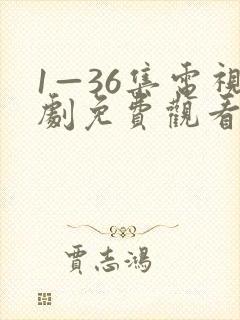 1—36集電視
劇免費觀看
賈志鴻